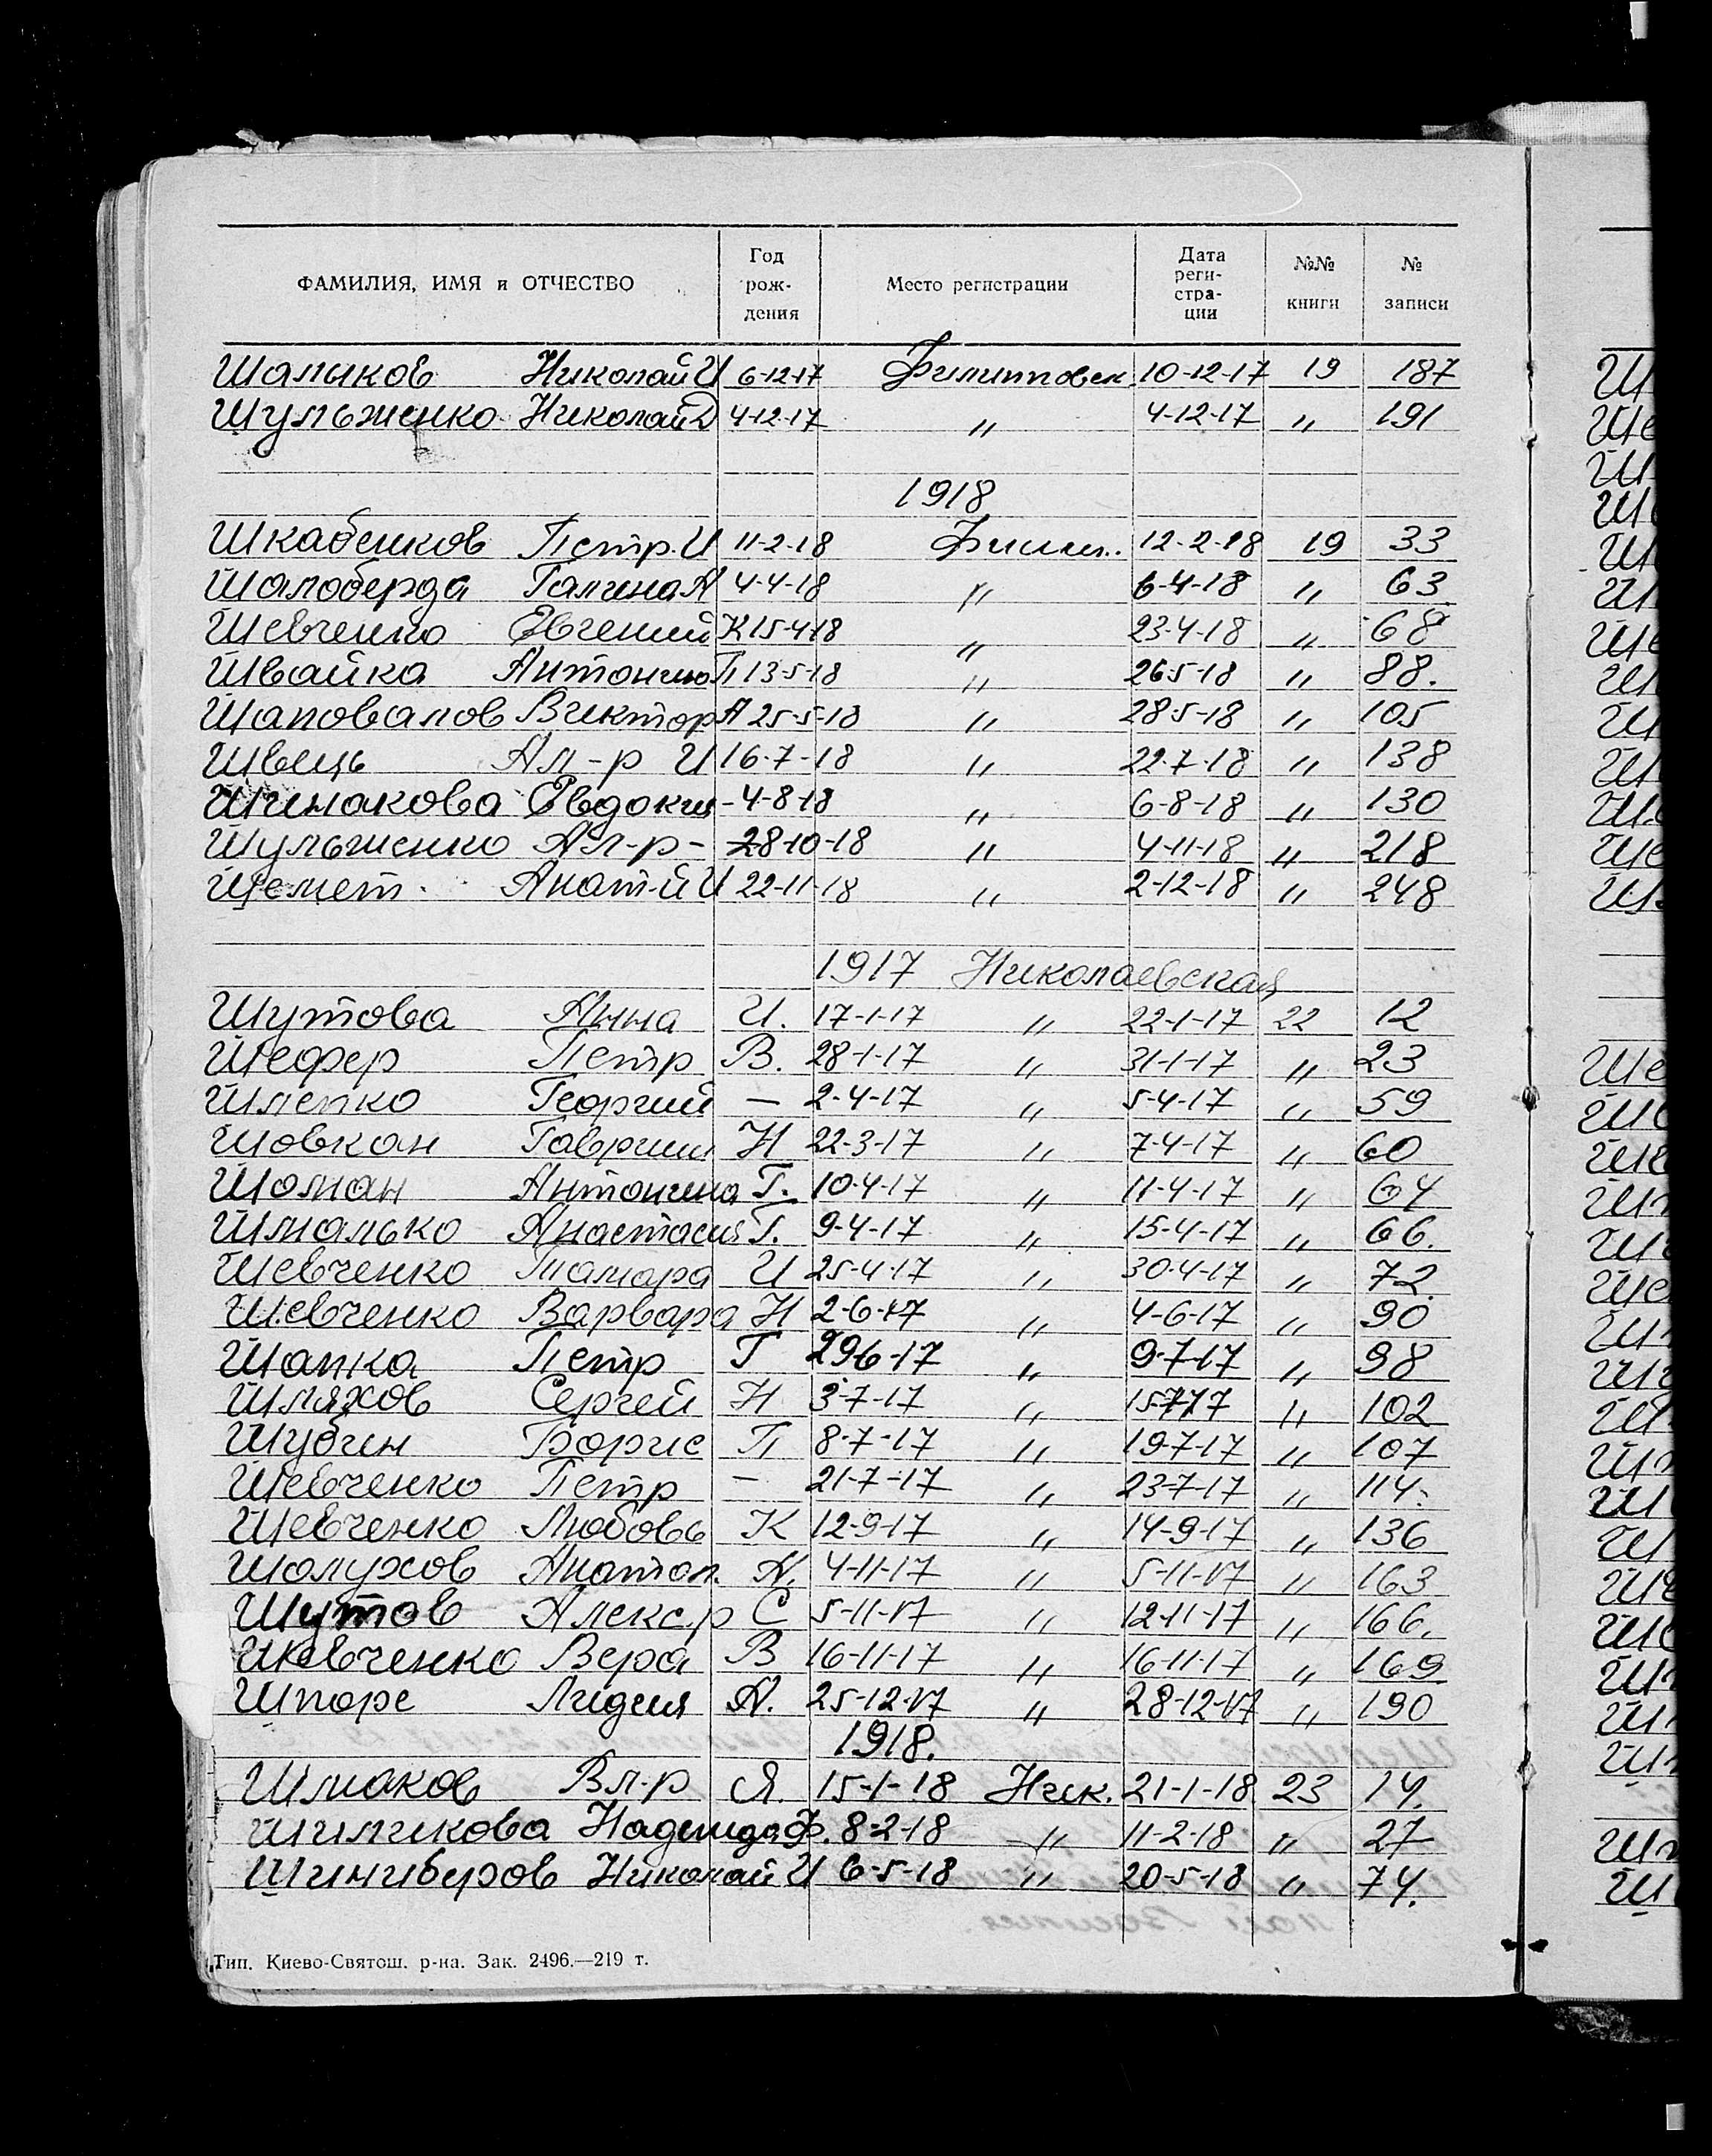 ФАМИЛИЯ, ИМЯ и ОТЧЕСТВО Год рождения Место регистрации Дата регистрации №№ книги № записи
Шалыков Николай И 6-12-17 Филипповск. 10-12-17 19 187
Шульженко Николай Д 4-12-17 " 4-12-17 " 191
1918
Шкабенков Петр И 11-2-18 Филип.. 12-2-18 19 33
Шалоберда Галина А 4-4-18 " 6-4-18 " 63
Шевченко Евгений К 15-4-18 " 23-4-18 " 68
Швайка Антонина П 13-5-18 " 26-5-18 " 88.
Шаповалов Виктор А 25-5-18 " 28-5-18 " 105
Швець Ал-р И 16-7-18 " 22-7-18 " 138
Шинакова Евдокия - 4-8-18 " 6-8-18 " 130
Шульженко Ал-р - 28-10-18 " 4-11-18 " 218
Шемет. Анат-й И 22-11-18 " 2-12-18 " 248
1917 Николаевская
Шутова Анна И. 17-1-17 " 22-1-17 22 12
Шефер Петр В. 28-1-17 " 31-1-17 " 23
Шлепко Георгий — 2-4-17 " 5-4-17 " 59
Шовкан Гавриил Н 22-3-17 " 7-4-17 " 60
Шоман Антонина Г. 10-4-17 " 11-4-17 " 64
Шмалько Анастасия Г. 9-4-17 " 15-4-17 " 66.
Шевченко Тамара И 25-4-17 " 30-4-17 " 72
Шевченко Варвара Н 2-6-17 " 4-6-17 " 90
Шапка Петр Г 29-6-17 " 9-7-17 " 98
Шляхов Сергей Н 3-7-17 " 15-7-17 " 102
Шубин Борис П 8-7-17 " 19-7-17 " 107
Шевченко Петр — 21-7-17 " 23-7-17 " 114.
Шевченко Любовь К 12-9-17 " 14-9-17 " 136
Шолухов Анатол. Н. 4-11-17 " 5-11-17 " 163
Шутов Алекс.р С 5-11-17 " 12-11-17 " 166.
Шевченко Вера В 16-11-17 " 16-11-17 " 169
Шпорс Лидия А. 25-12-17 " 28-12-17 " 190
1918.
Шмаков Вл-р Я. 15-1-18 Ник. 21-1-18 23 14.
Шиликова Надежда Ф. 8-2-18 " 11-2-18 " 27
Шиниберов Николай И 6-5-18 " 20-5-18 " 74.
Тип. Киево-Святош. р-на. Зак. 2496.—219 т.